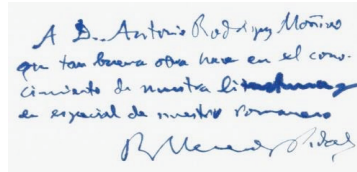 A D. Antonio Rodríguez Moñino
que tan buena obra hace en el cono-
cimiento de nuestra literatura y
en especial de nuestro romancero
R. Menéndez Pidal